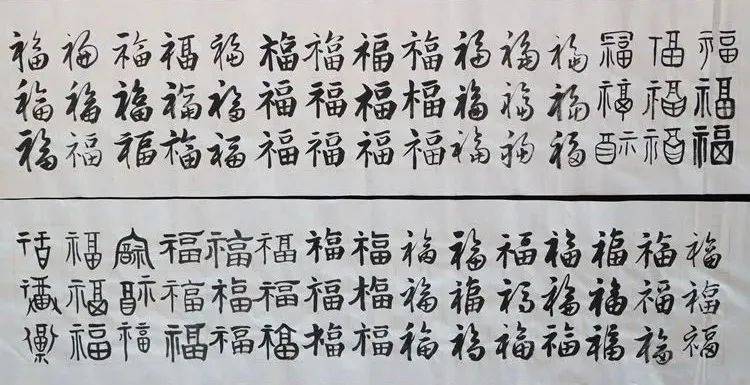 福福福福福福福福福福福福福福福
福福福福福福福福福福福福福福福
福福福福福福福福福福福福福福福
福福福福福福福福福福福福福福福
福福福福福福福福福福福福福福福
福福福福福福福福福福福福福福福